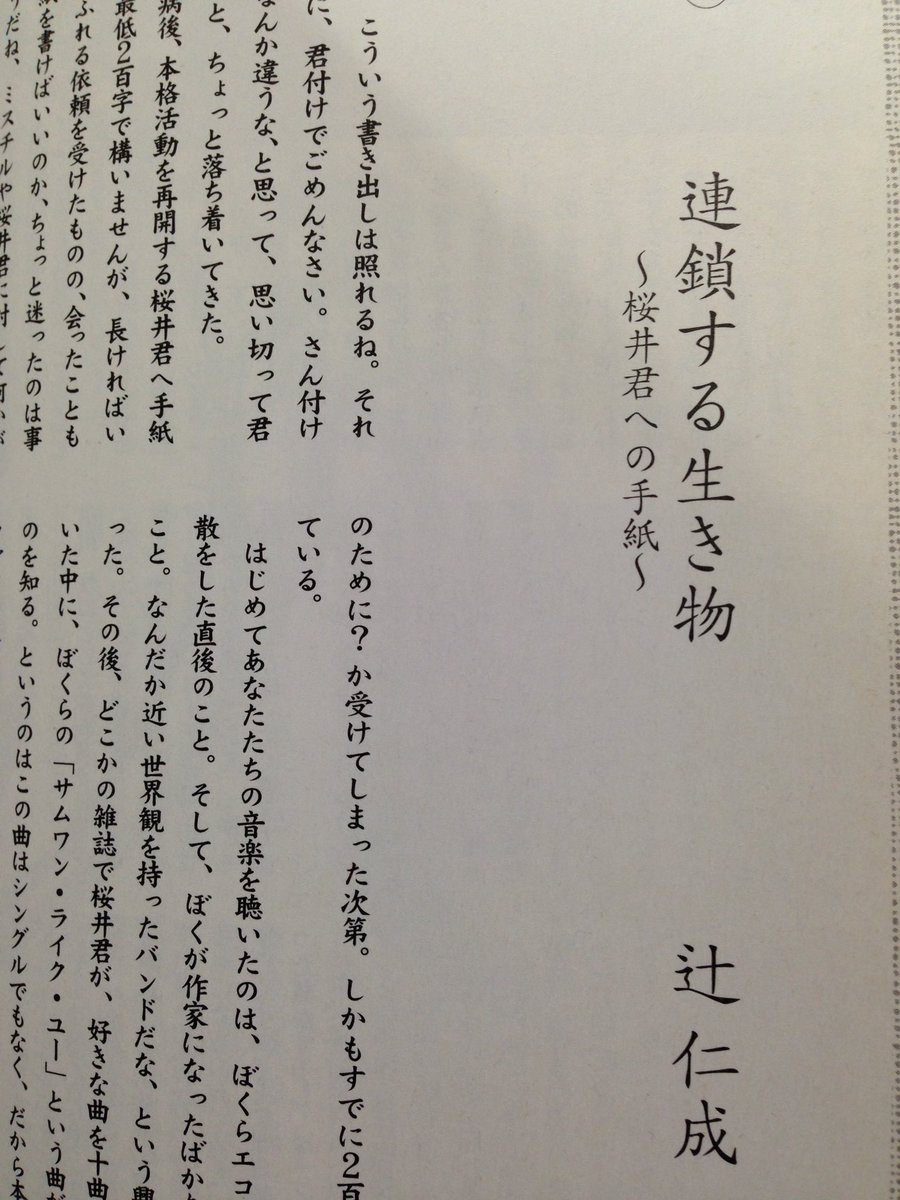 連鎖する生き物
～桜井君への手紙～
辻仁成
こういう書き出しは照れるね。それ
に、君付けでごめんなさい。さん付け
なんか違うな、と思って、思い切って君
と、ちょっと落ち着いてきた。
病後、本格活動を再開する桜井君へ手紙
最低2百字で構いませんが、長ければい
ふれる依頼を受けたものの、会ったことも
紙を書けばいいのか、ちょっと迷ったのは事
だね、ミスチルや桜井君に対して何かが
のために？か受けてしまった次第。しかもすでに2百
ている。
はじめてあなたたちの音楽を聴いたのは、ぼくらエコ
散をした直後のこと。そして、ぼくが作家になったばかり
こと。なんだか近い世界観を持ったバンドだな、という興
った。その後、どこかの雑誌で桜井君が、好きな曲を十曲
いた中に、ぼくらの「サムワン・ライク・ユー」という曲が
のを知る。というのはこの曲はシングルでもなく、だから本